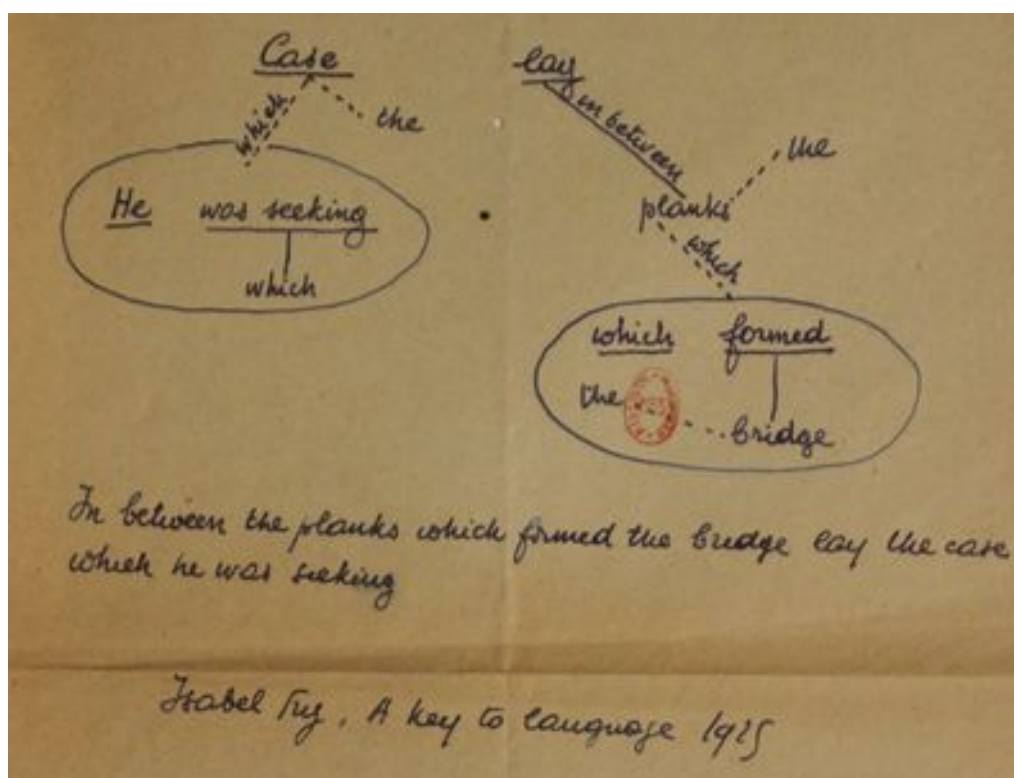 Case
lay
which
the
in between
the
He was seeking
planks
which
which
which formed
the
bridge
In between the planks which formed the bridge lay the case
which he was seeking
Isabel Fry, A key to language 1925